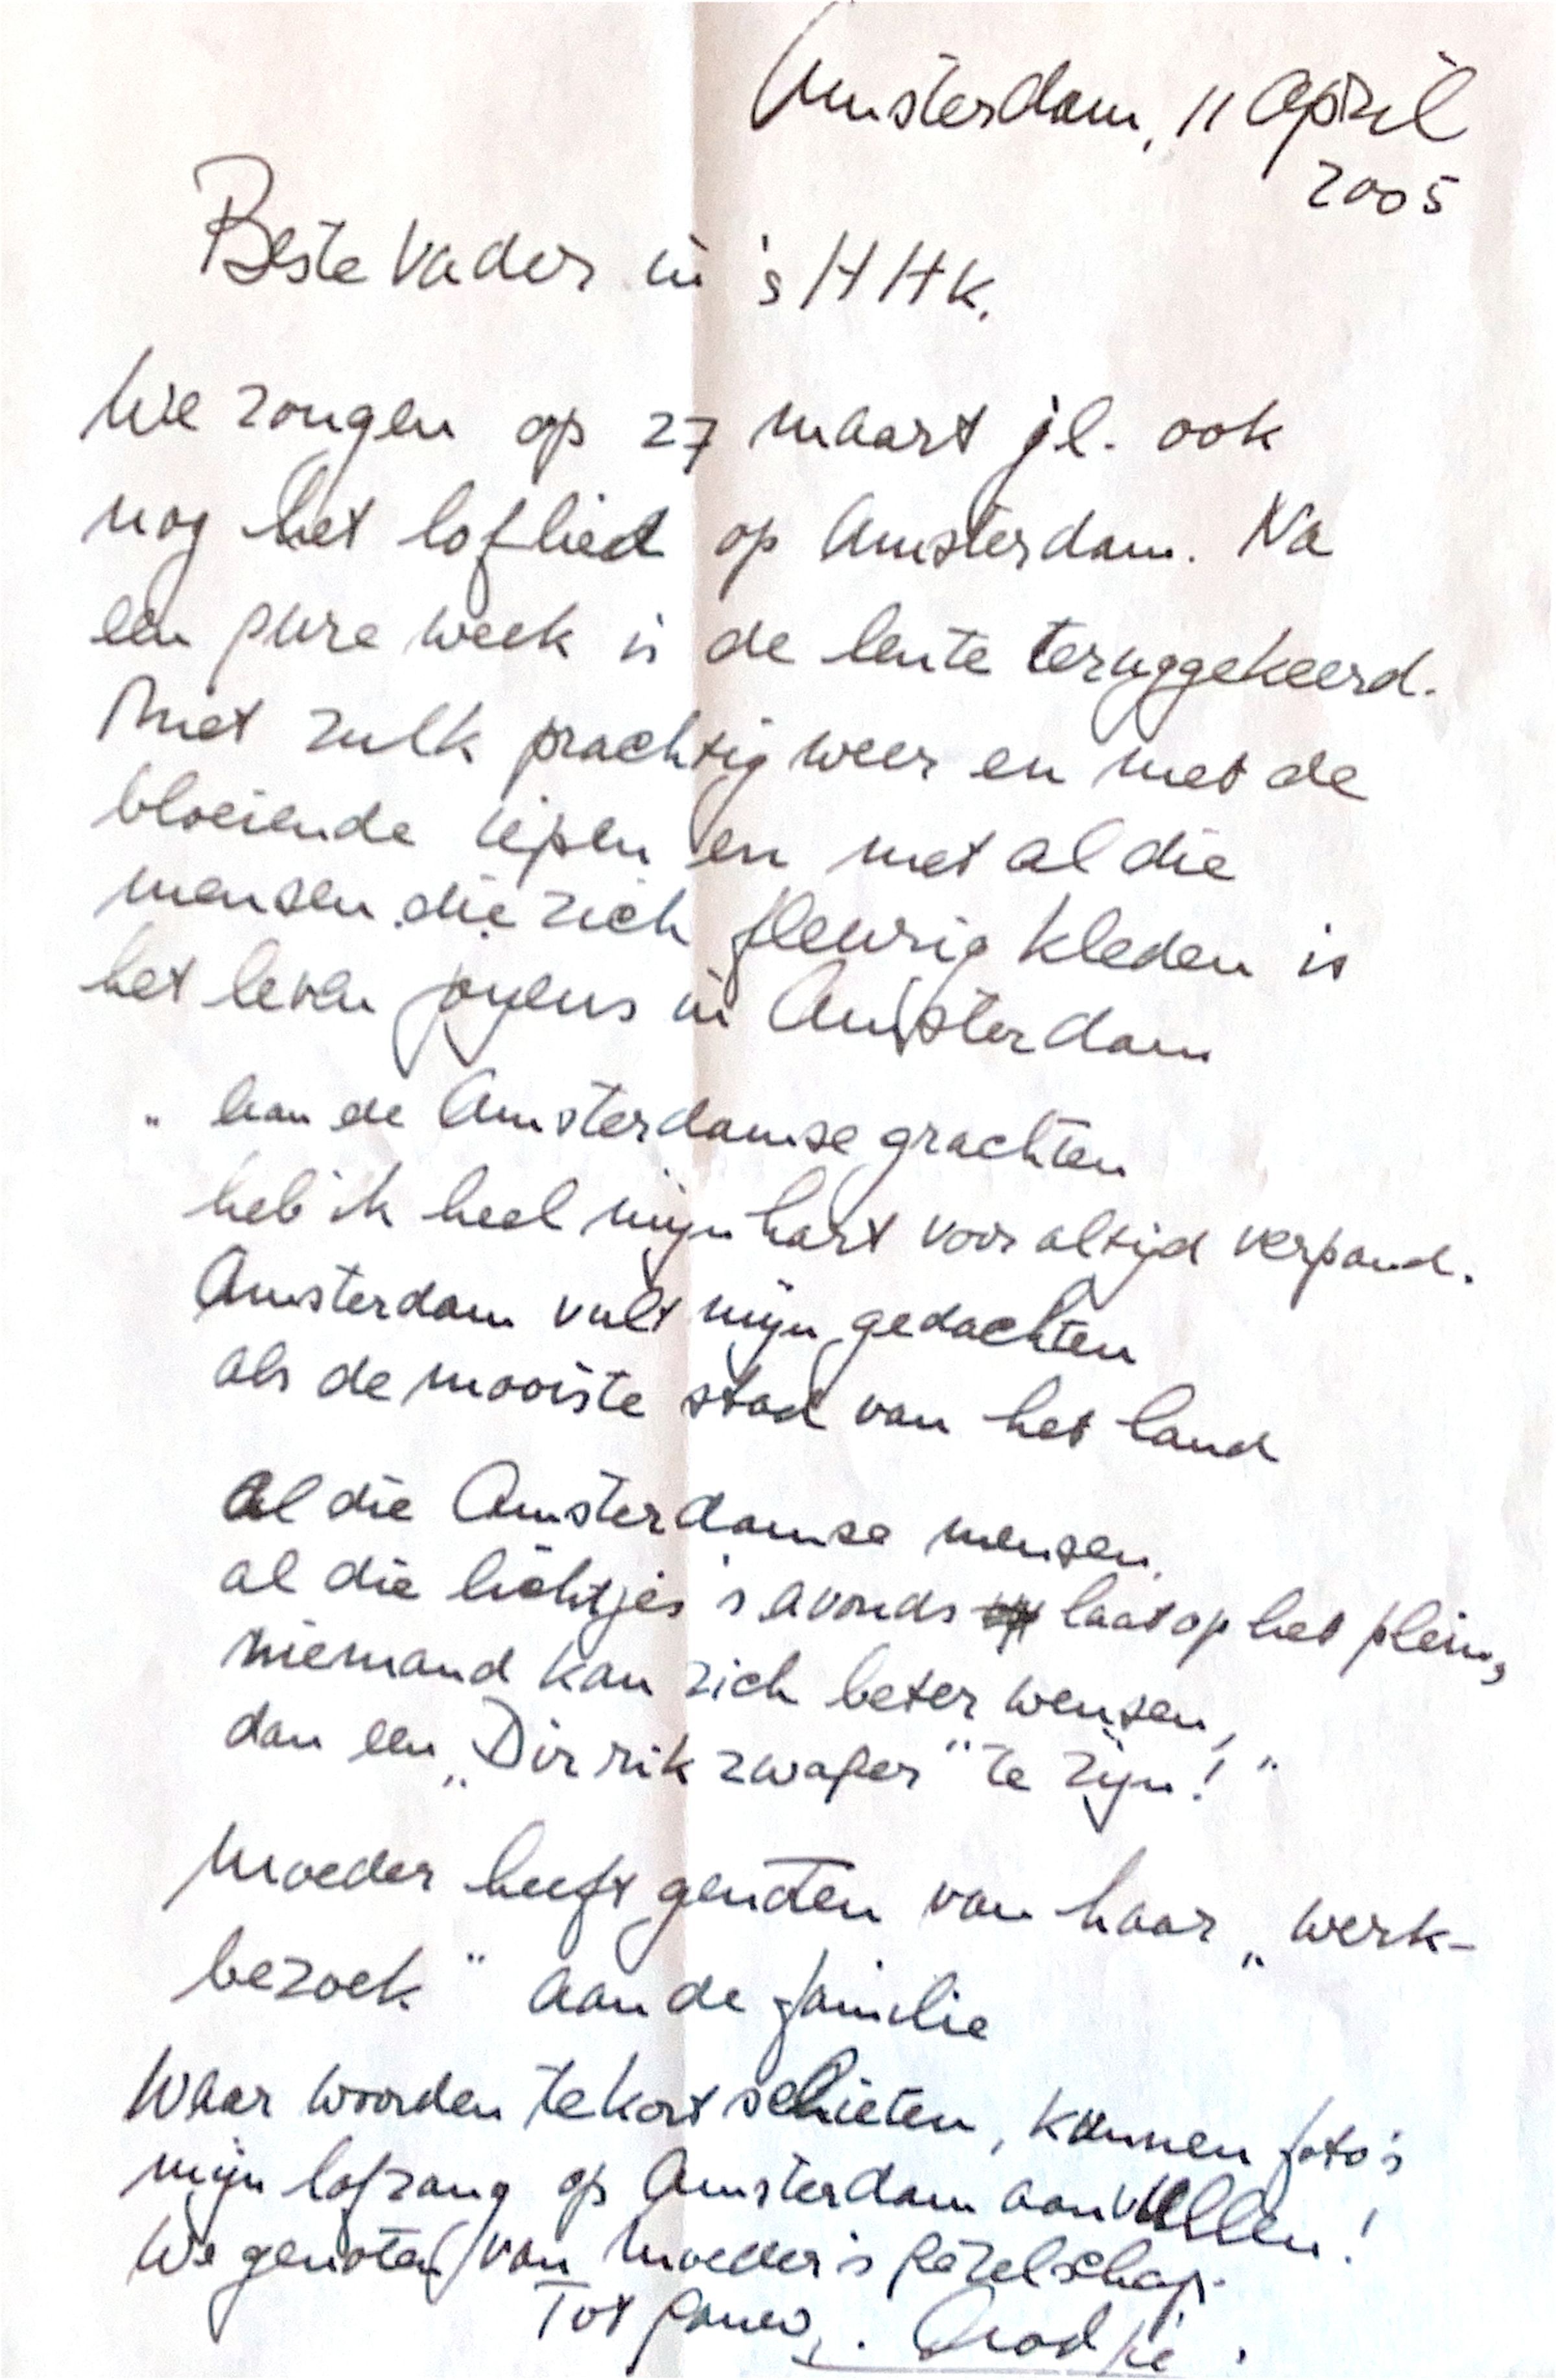 Amsterdam, 11 April
2005
Beste Vader in 's HHK.
We zongen op 27 maart jl. ook
nog het loflied op Amsterdam. Na
een pure week is de lente teruggekeerd.
Met zulk prachtig weer en met de
bloeiende iepen en met al die
mensen die zich fleurig kleden is
het leven joyeus in Amsterdam
„ Aan de Amsterdamse grachten
heb ik heel mijn hart voor altijd verpand.
Amsterdam vult mijn gedachten
als de mooiste stad van het land
Al die Amsterdamse mensen,
al die lichtjes 's avonds laat op het plein,
niemand kan zich beter wensen,
dan een „Dirrik zwager" te zijn! "
Moeder heeft genoten van haar „werk-
bezoek" aan de familie
Waar woorden tekort schieten, kunnen foto's
mijn lofzang op Amsterdam aanvullen!
We genoten van Moeder's gezelschap.
Tot gauw,